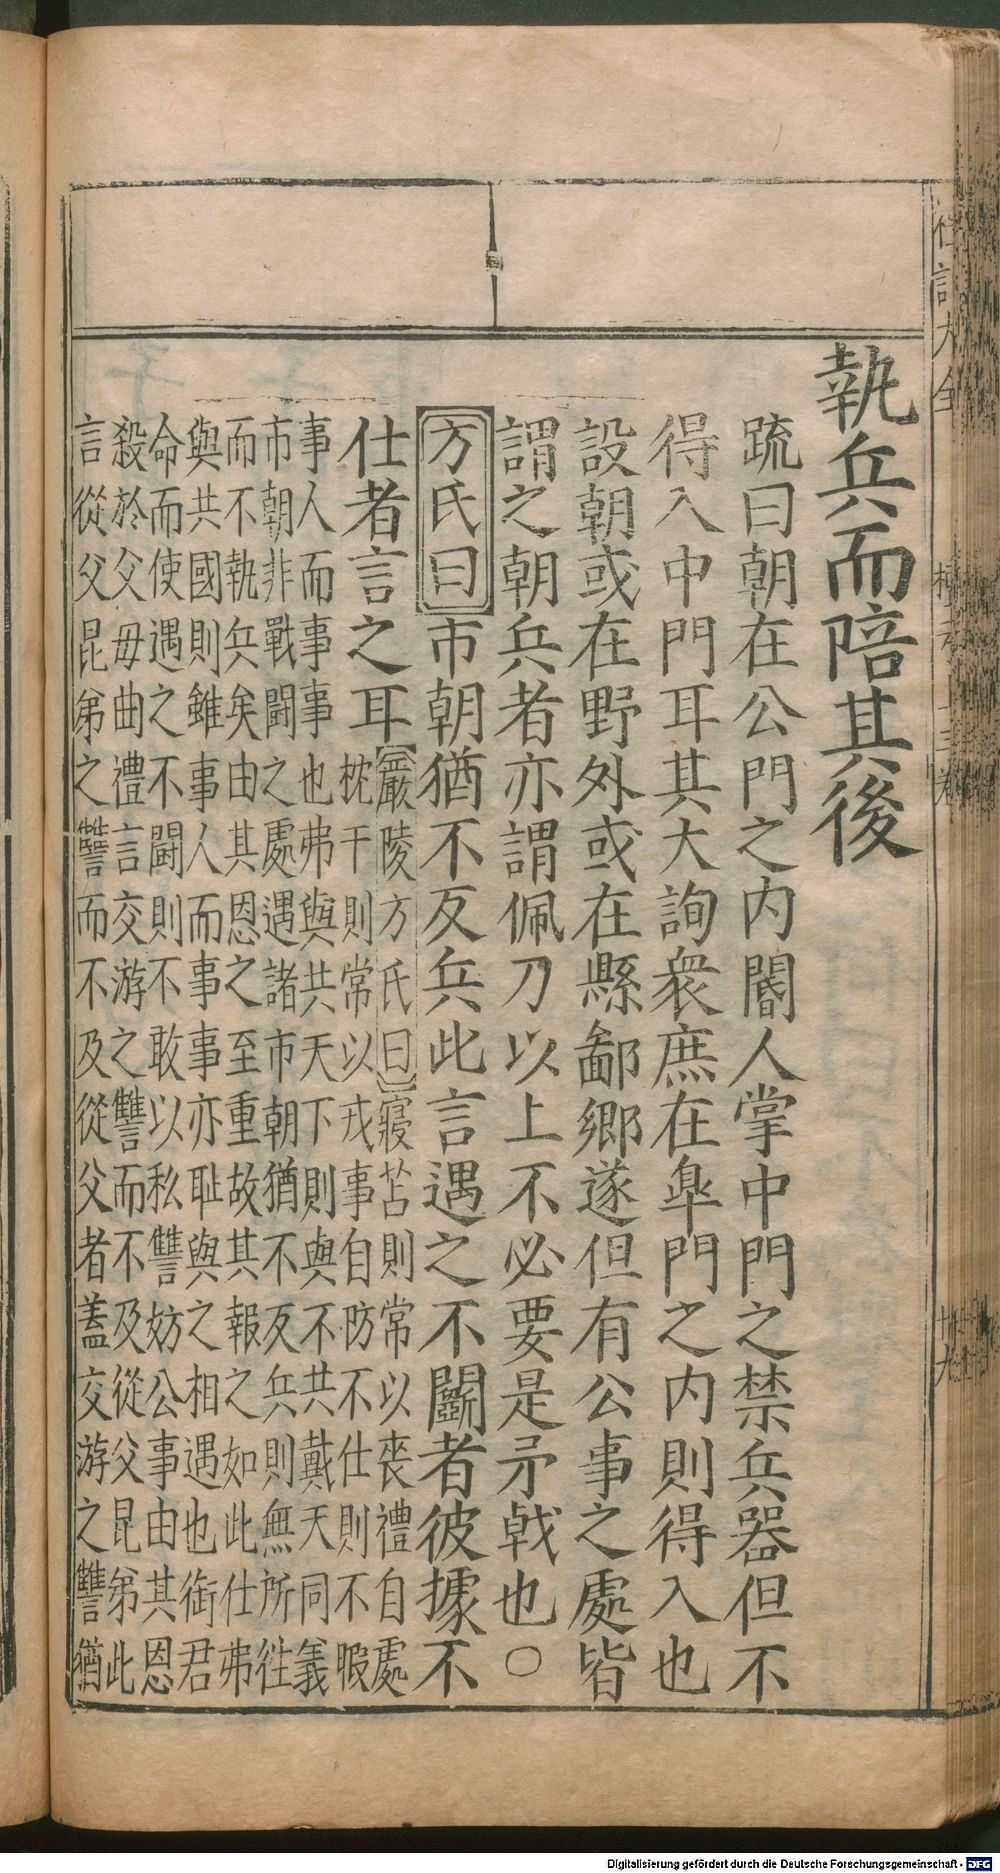 執兵而陪其後
疏曰朝在公門之内閽人掌中門之禁兵器但不
得入中門耳其大詢衆庶在臯門之内則得入也
設朝或在野外或在縣鄙鄉遂但有公事之處皆
謂之朝兵者亦謂佩刀以上不必要是矛戟也○
方氏曰市朝猶不反兵此言遇之不鬭者彼據不
仕者言之耳
嚴陵方氏曰寢苫則常以喪禮自處
枕干則常以戎事自防不仕則不暇
事人而事事也弗與共天下則與不共戴天同義
市朝非戰鬪之處遇諸市朝猶不反兵則無所徃
而不執兵矣由其恩之至重故其報之如此仕弗
與共國則雖事人而事事亦耻與之相遇也銜君
命而使遇之不鬪則不敢以私讐妨公事由其恩
殺於父母曲禮言交游之讐而不及從父昆弟此
言從父昆弟之讐而不及從父者蓋交游之讐猶
十九
Digitalisierung gefördert durch die Deutsche Forschungsgemeinschaft - DFG